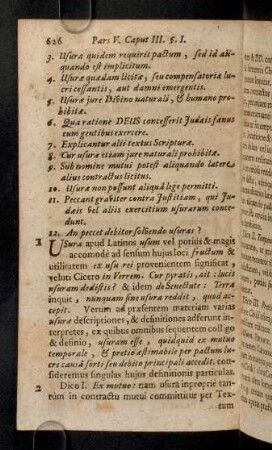 626 Pars V. Caput III. §. I.
3. Usura quidem requirit pactum, sed id ali-
quando est implicitum.
4. Usura quædam licita, seu compensatoria lu-
cri cessantis, aut damni emergentis.
5. Usura jure Divino naturali, & humano pro-
hibita.
6. Qua ratione DEUS concesserit Judæis fanus
cum gentibus exercere.
7. Explicantur alii textus Scripturæ.
8. Cur usura etiam jure naturali prohibita.
9. Sub nomine mutui potest aliquando latere
alius contractus licitus.
10. Usura non possunt aliqua lege permitti.
11. Peccant graviter contra Justitiam, qui Ju-
dæis vel aliis exercitium usurarum conce-
dunt.
12. An peccet debitor solvendo usuras?
1 Usura apud Latinos usum vel potiùs & magis
accomodè ad sensum hujus loci fructum &
utilitatem ex usu rei provenientem significat,
veluti Cicero in Verrem. Cur pyratis, ait: lucis
usuram dedistis? & idem de Senectute: Terra
inquit, nunquam sine usura reddit, quod acce-
pit. Verùm ad præsentem materiam variæ
usuræ descriptiones, & definitiones adferunt in-
terpretes, ex quibus omnibus sequentem colligo
& definio, usuram esse, quidquid ex mutuo
temporale, & pretio æstimabile per pactum lu-
cri causâ sorti seu debito principali accedit. con-
sideremus singulas hujus definitionis particulas.
2 Dico I. Ex mutuo: nam usura impropriè tan-
tùm in contractu mutui committitur per Tex-
tum